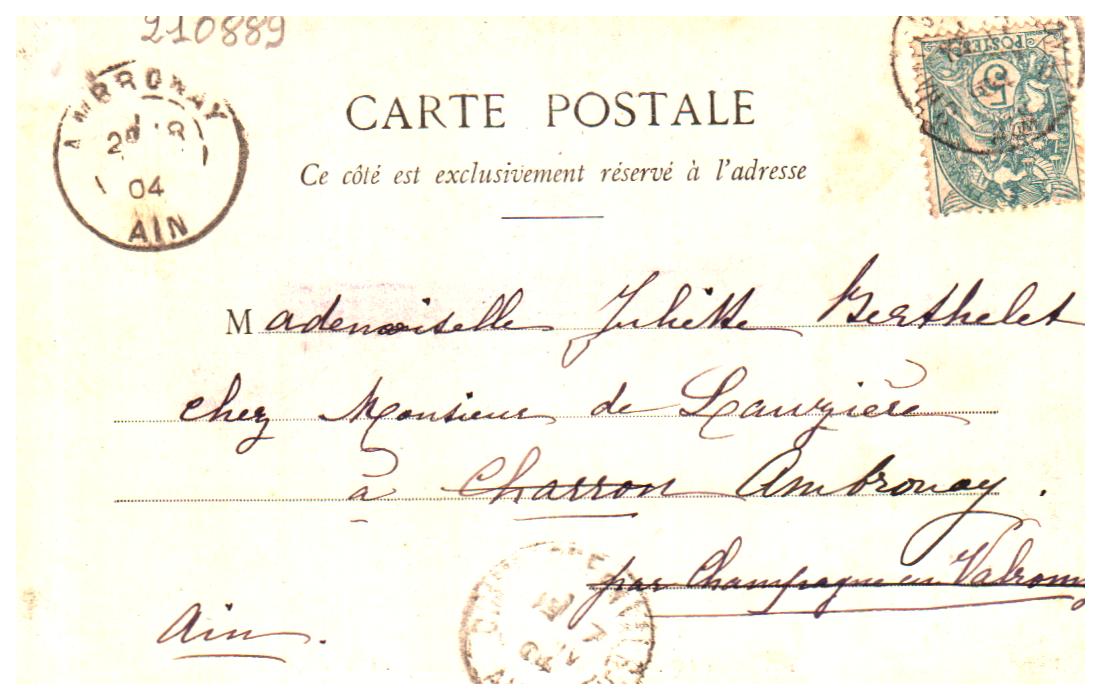 210889
AMBRONAY
04
AIN
POSTES
5
CARTE POSTALE
Ce côté est exclusivement réservé à l'adresse
Mademoiselle Juliette Berthelet
chez Monsieur de Lauzière
à Charron Ambronay.
par Champagne en Valromey
Ain.